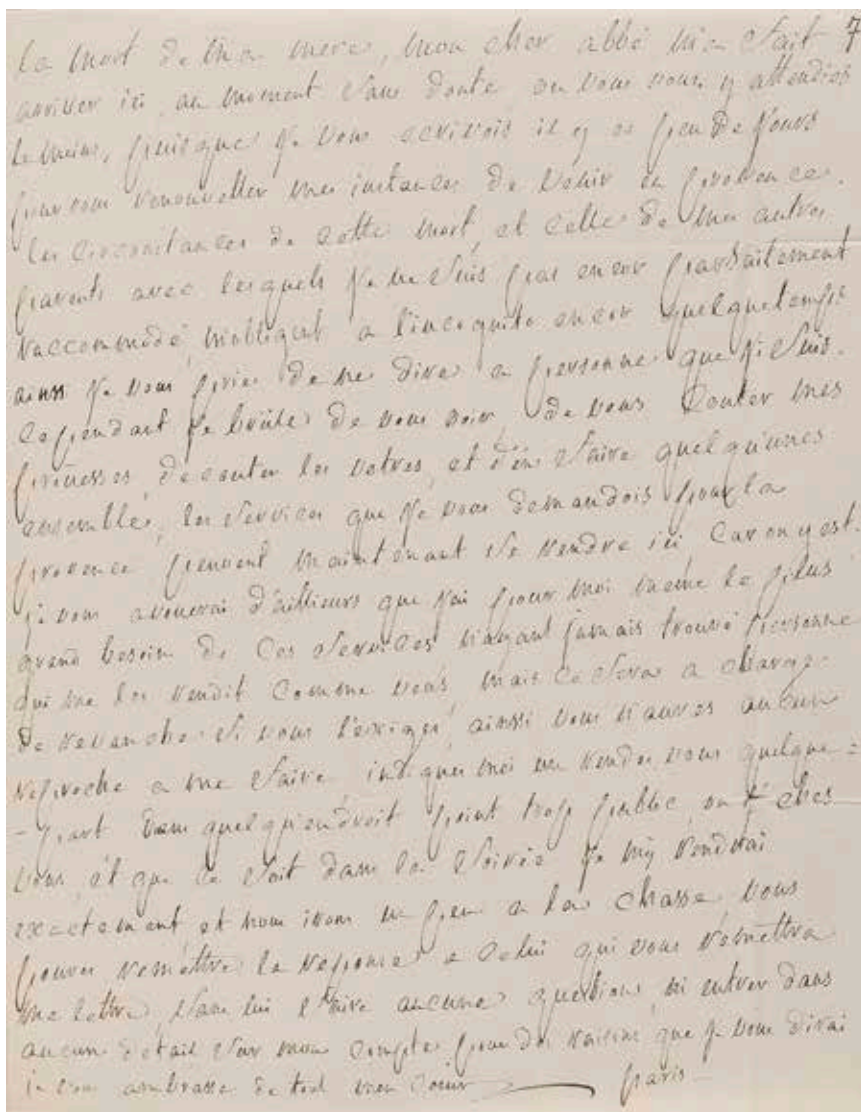 la mort de ma mere, mon cher abbé m'a fait 7
arriver ici, au moment sans doute ou vous vous y attendiez
le moins, puisque je vous ecrivois il y a peu de jours
pour vous renouveller mes instances de venir en provence.
les circonstances de cette mort, et celle de mes autres
parents avec lesquels je ne suis pas encor parfaitement
raccommodé, m'obligent a l'incognito encor quelque temps
ainsi je vous prie de ne dire a personne que j'i suis.
cependant je brûle de vous voir, de vous conter mes
prouesses, d'ecouter les votres, et d'en faire quelqu'unes
ensemble, les services que je vous demandois pour la
provence peuvent maintenant se rendre ici, car on y est.
je vous avouerai d'ailleurs que j'ai pour moi même le plus
grand besoin de ces services n'ayant jamais trouvé personne
qui me les rendit comme vous, mais ce sera a charge
de revanche si vous l'exigez, ainsi vous n'aures aucun
reproche a me faire, indiquez moi un rendes vous quelque =
- part dans quelqu'endroit point trop public, ou chez
vous, et que ce soit dans la soirée je m'y rendrai
exactement et nous irons un peu a la chasse vous
pouvez remettre la reponse a celui qui vous remettra
ma lettre, sans lui faire aucune question, ni entrer dans
aucun detail sur mon compte pour des raisons que je vous dirai
je vous ambrasse de tout mon coeur paris